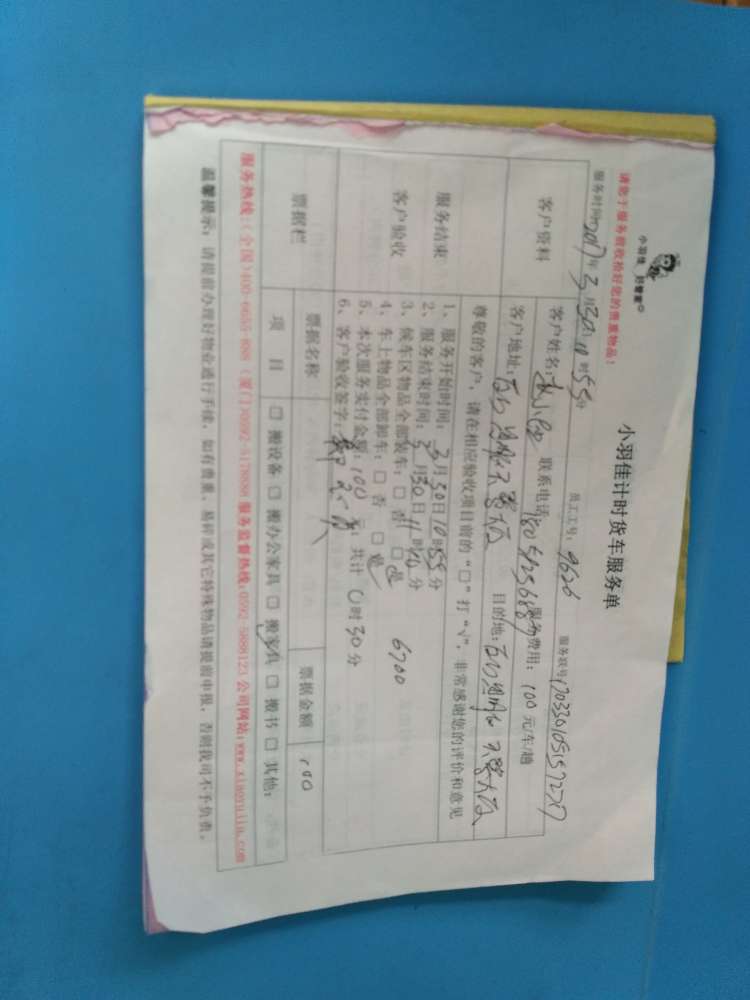 小羽佳 好管家
小羽佳计时货车服务单
请您于服务前收拾好您的贵重物品！
服务时间 2017年3月30日10时55分 员工工号：9626 服务联号
客户资料
客户姓名： 联系电话： 服务费用：100元/车/趟
客户地址： 目的地：
服务结束
客户验收
尊敬的客户，请在相应验收项目前的“□”打“√”，非常感谢您的评价和意见
1、服务开始时间：3月30日10时55分
2、服务结束时间：3月30日11时 分
3、候车区物品全部装车：□否 □是
4、车上物品全部卸车：□否 □是 6700
5、本次服务实付金额：100元；共计0时30分
6、客户验收签字：
票据栏
票据名称 票据金额 100
项 目 □搬设备 □搬办公家具 □搬家具 □搬书 □其他：
服务热线：（全国）400-6655-808（厦门）0592-5178888 服务监督热线：0592-5888123 公司网站：www.xiaoyujia.com
温馨提示：请提前办理好物业通行手续，如有贵重、易碎或其它特殊物品请提前申报，否则我司不予负责。